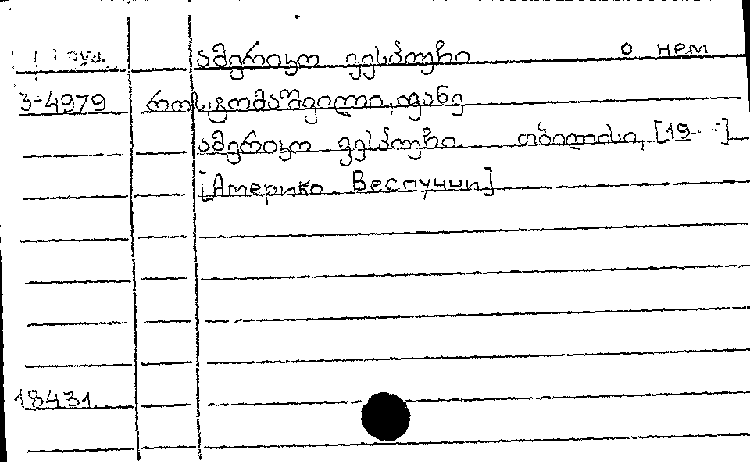 ამერიკო ვესპუჩი о нем
3-4979 როსტომაშვილი, ფანე
ამერიკო ვესპუჩი თბილისი, [19 - -]
[Америко Веспуччи]
18431